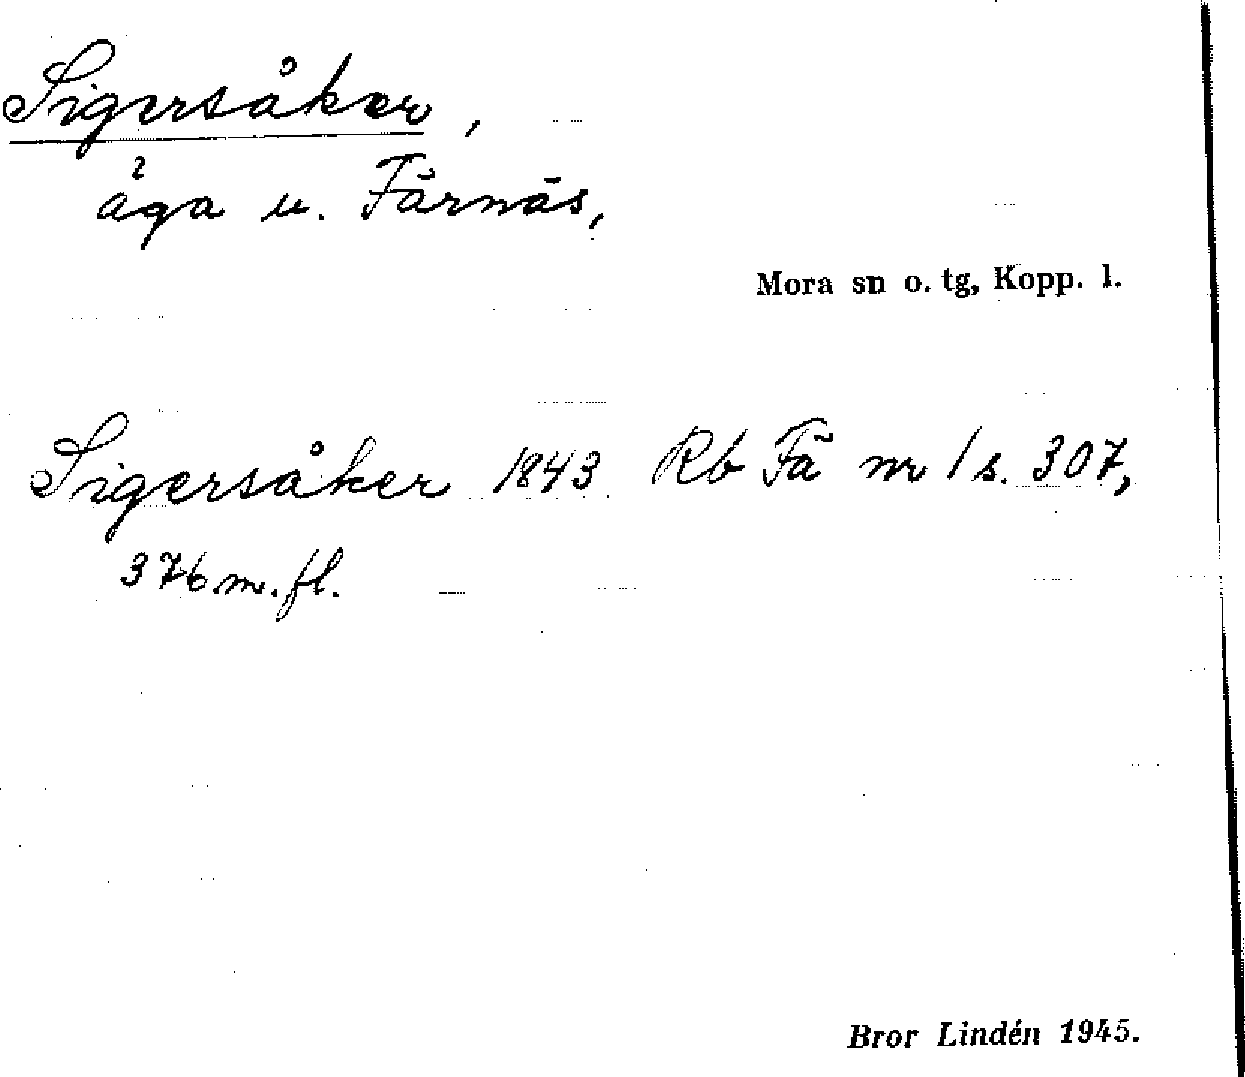 Sigersåker,
åga u. Färnäs,
Mora sn o. tg, Kopp. l.
Sigersåker 1843 Rb Fä nr 1 s. 307,
376 m. fl.
Bror Lindén 1945.